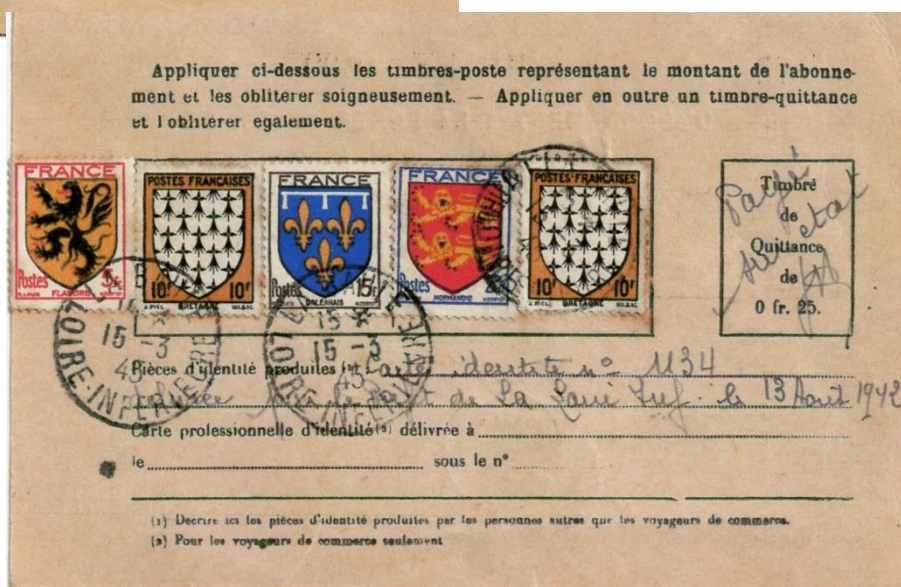 Appliquer ci-dessous les timbres-poste représentant le montant de l'abonne-
ment et les obliterer soigneusement. — Appliquer en outre un timbre-quittance
et l obliterer egalement.
FRANCE POSTES FRANÇAISES FRANCE FRANCE POSTES FRANÇAISES
Postes 5F 10F 10F Postes 15F Postes 10F 10F
FLANDRE BRETAGNE ORLEANAIS NORMANDIE BRETAGNE
Timbre
de
Quittance
de
0 fr. 25.
Payé
état
15 *
15 -3
43
LOIRE-INFERIEURE
15 *
15 -3
43
LOIRE-INFERIEURE
Pièces d'identité produites (1) Carte identité n° 1134
de La Loire Inf. le 13 Août 1942
Carte professionnelle d'identité (2) délivrée à
le sous le n°
(1) Decrire ici les pièces d'identité produites par les personnes autres que les voyageurs de commerce.
(2) Pour les voyageurs de commerce seulement